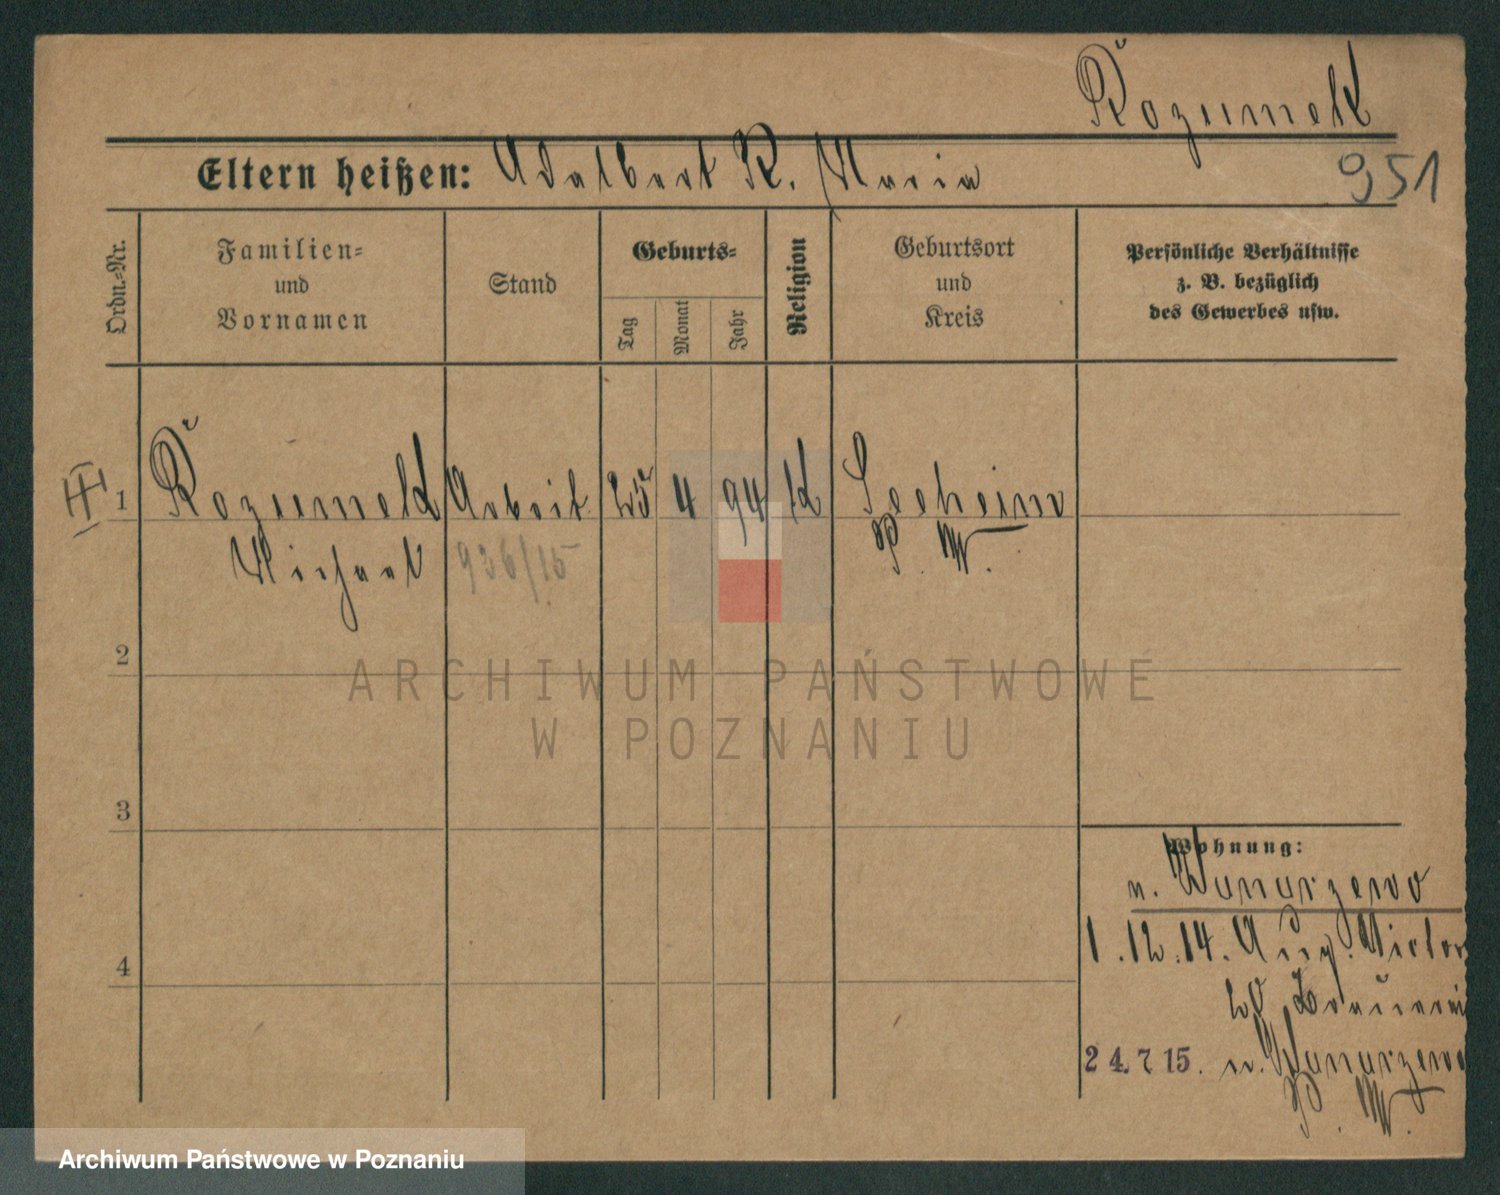 Rozumek
Eltern heißen: Adalbert R. Maria
951
Ordn.-Nr.
Familien-
und
Vornamen
Stand
Geburts-
Tag
Monat
Jahr
Religion
Geburtsort
und
Kreis
Persönliche Verhältnisse
z. B. bezüglich
des Gewerbes usw.
1 Rozumek Arbeit 25 4 94 K Seeheim
Michael 936/15 P. W.
2
3
4
Wohnung:
n. Wunarzewo
1.12.14. Aug. Victor
20 Brauerei
24.7 15. n. Wunarzewo
P. W.
ARCHIWUM PAŃSTWOWE
W POZNANIU
Archiwum Państwowe w Poznaniu